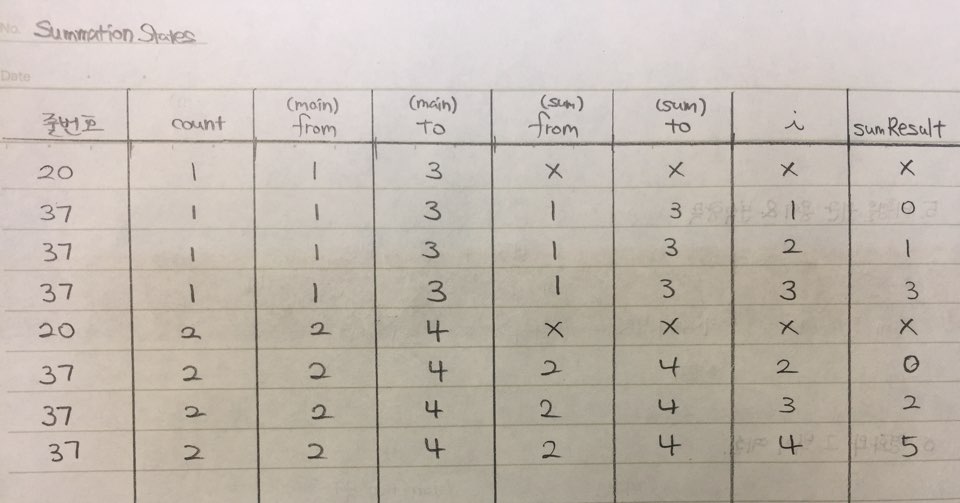 No. Summation States
Date
줄번호 count (main) from (main) to (sum) from (sum) to i sumResult
20 1 1 3 x x x x
37 1 1 3 1 3 1 0
37 1 1 3 1 3 2 1
37 1 1 3 1 3 3 3
20 2 2 4 x x x x
37 2 2 4 2 4 2 0
37 2 2 4 2 4 3 2
37 2 2 4 2 4 4 5